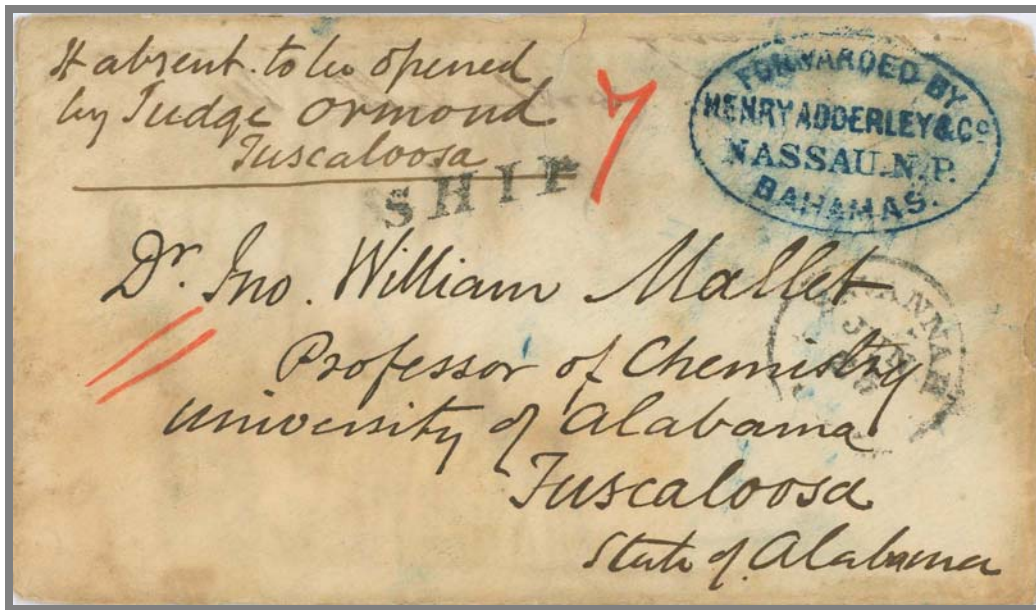 If absent. to be opened
by Judge Ormond
Tuscaloosa
7
FORWARDED BY
HENRY ADDERLEY & Co
NASSAU. N. P.
BAHAMAS.
SHIP
Dr. Jno. William Mallet
SAVANNAH
Professor of Chemistry
University of Alabama
Tuscaloosa
State of Alabama